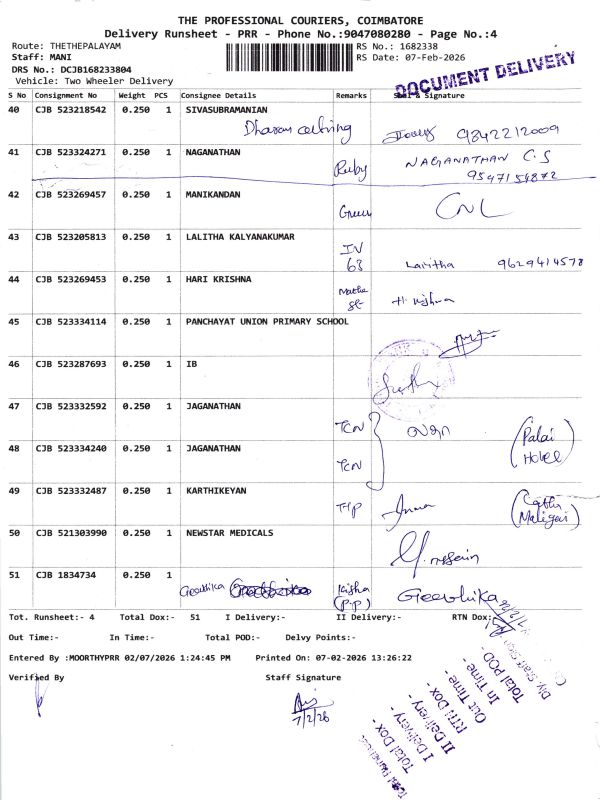 THE PROFESSIONAL COURIERS, COIMBATORE
Delivery Runsheet - PRR - Phone No.:9047080280 - Page No.:4
Route: THETHEPALAYAM
Staff: MANI
DRS No.: DCJB168233804
Vehicle: Two Wheeler Delivery
RS No.: 1682338
RS Date: 07-Feb-2026
DOCUMENT DELIVERY
S No Consignment No Weight PCS Consignee Details Remarks & Signature
40 CJB 523218542 0.250 1 SIVASUBRAMANIAN
9842212009
41 CJB 523324271 0.250 1 NAGANATHAN
Ruby NAGANATHAN C.S
9547154872
42 CJB 523269457 0.250 1 MANIKANDAN
Green
43 CJB 523205813 0.250 1 LALITHA KALYANAKUMAR
IN
63 Lalitha 9629414578
44 CJB 523269453 0.250 1 HARI KRISHNA
St
45 CJB 523334114 0.250 1 PANCHAYAT UNION PRIMARY SCHOOL
46 CJB 523287693 0.250 1 IB
47 CJB 523332592 0.250 1 JAGANATHAN
TCN (Palai
Hotel)
48 CJB 523334240 0.250 1 JAGANATHAN
TCN
49 CJB 523332487 0.250 1 KARTHIKEYAN
THP
Maligai)
50 CJB 521303990 0.250 1 NEWSTAR MEDICALS
51 CJB 1834734 0.250 1
Geethika (P.P) Geethika
Tot. Runsheet:- 4 Total Dox:- 51 I Delivery:- II Delivery:- RTN Dox:
Out Time:- In Time:- Total POD:- Delvy Points:-
Entered By :MOORTHYPRR 02/07/2026 1:24:45 PM Printed On: 07-02-2026 13:26:22
Verified By Staff Signature
7/2/26
Total Dox -
I Delivery -
II Delivery -
RTN Dox -
Out Time -
In Time -
Total POD -